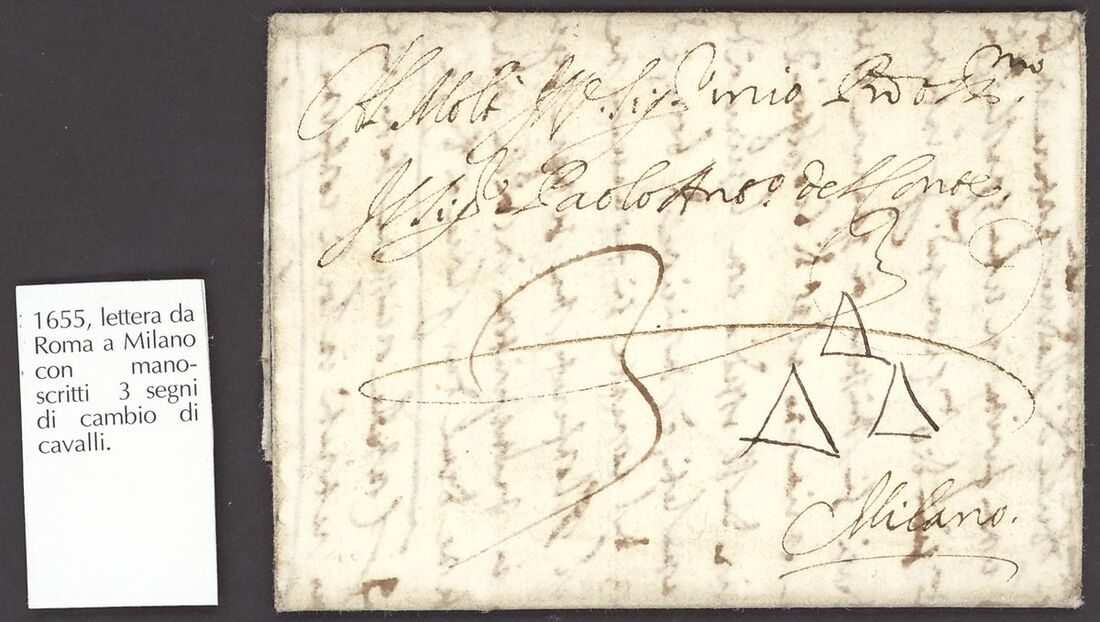 1655, lettera da
Roma a Milano
con mano-
scritti 3 segni
di cambio di
cavalli.
Al Molt Ill.e Sig.r mio
Il Sig.r Paolo Ant.o
3
Milano.